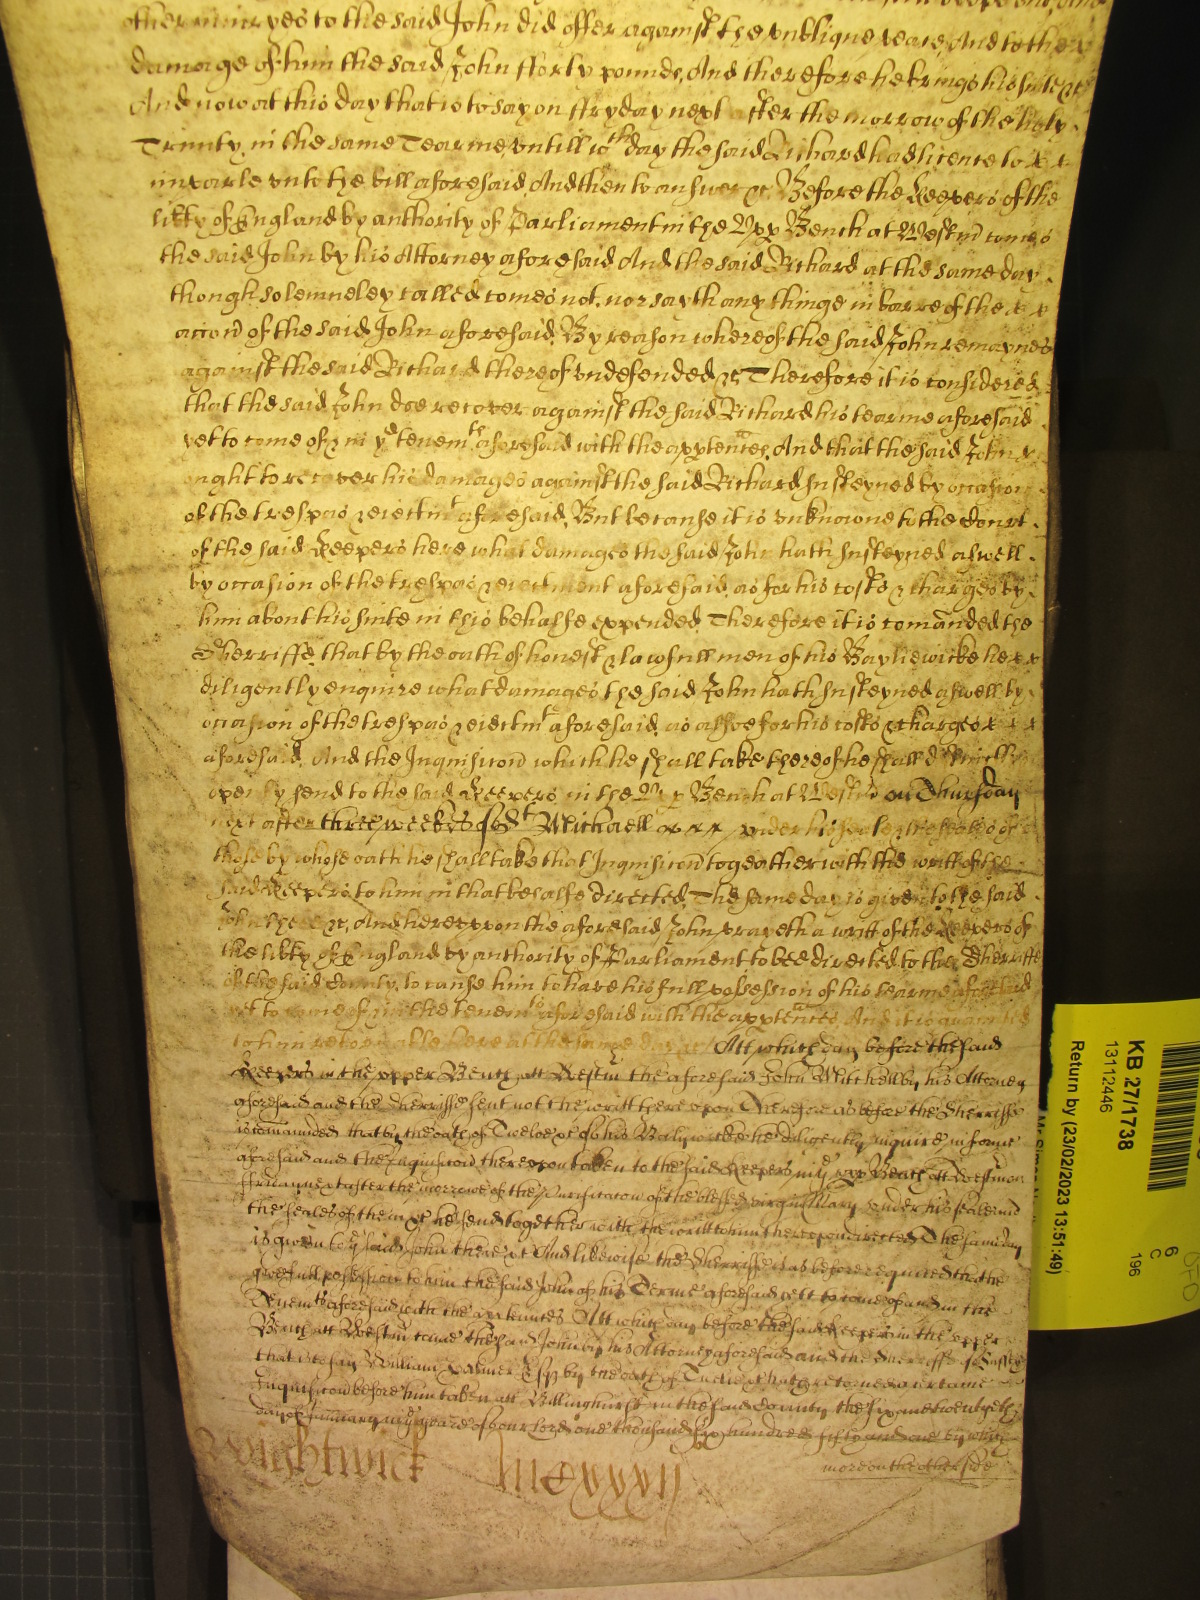 other iniuryes to the said John did offer against the publique peace, And to the
damage of him the said John fforty pounds, And therefore he brings his suite &c
And now at this day that is to say on ffryday next after the morrow of the holy
Trinity in the same Tearme, vntill wch day the said Richard had licence to x x
imparle vnto the bill aforesaid, And then to answer &c Before the Keepers of the
libty of England by authority of Parliament in the Vpp Bench at Westm comes
the said John by his Attorney aforesaid And the said Richard at the same day
though solemneley called comes not, nor sayth any thinge in barre of the x x
accon of the said John aforesaid, By reason whereof the said John remaynes
against the said Richard thereof vndefended &c Therefore it is considered
that the said John doe recover against the said Richard his tearme aforesaid
yet to come of & in ye tenemts aforesaid with the apptences, And that the said John x
ought to recover his damages against the said Richard susteyned by occasion
of the trespas & eiectmt aforesaid, But because it is vnknowne to the Court
of the said Keepers here what damages the said John hath susteyned aswell
by occasion of the trespas & eiectment aforesaid, as for his costs & charges by
him about his suite in this behalfe expended, Therefore it is comanded the
Sherriffe, that by the oath of honest & lawfull men of his Bayliewicke he x x
diligently enquire what damages the said John hath susteyned aswell by
occasion of the trespas & eiectmt aforesaid, as alsoe for his costs & charges x x x
aforesaid, And the Inquisicon which he shall take thereof he shall
openly send to the said Keepers in the Vpp Bench at Westm on Thursday
next after three weekes of St Michaell x x x vnder his seale & the seales of
those by whose oath he shall take that Inquisicon togeather with the writt of the
said Keepers to him in that behalfe directed, The same day is given to the said
John there &c, And herevpon the aforesaid John prayeth a writt of the Keepers of
the libty of England by authority of Parliament to bee directed to the Sherriffe
of the said County, to cause him to have his full possession of his tearme aforesaid
yet to come of & in the tenemts aforesaid with the apptences, And it is graunted
to him retornable here at the same day &c Att which day before the said
Keepers in the vpper Bench att Westm the aforesaid John Mitchell by his Attorney
aforesaid and the Sherriffe sent not the writt there vpon Therefore as before the Sherriffe
is comanded that by the oath of Twelve &c of his Bailywicke he diligently inquire in forme
aforesaid and the Inquisicon therevpon taken to the said Keepers in ye vpp Bench att Westm on
next after the morrowe of the Purificacon of the blessed virgin Mary vnder his seale and
the seales of them &c he send together with the writt to him therevpon directed The same day
is given to ye said John there &c And likewise the Sherriffe is as before required that he
give full possession to him the said John of his Terme aforesaid yett to come of and in the
Tenemts aforesaid with the apptenntes Att which day before the said Keepers in the vpper
Bench att Westm came the said John by his Attorney aforesaid and the Sherriffe of Sussex
that is to say William Palmer Esqr by the oath of Twelve &c hath retorned a certaine
Inquisicon before him taken att Billinghurst in the said County the six and twentyeth
day of January in ye yeare of our Lord one thousand six hundred fifty and one by which
more on the other side
Wightwick
KB 27/1738
13112446
Return by (23/02/2023 13:51:49)
6
C
196